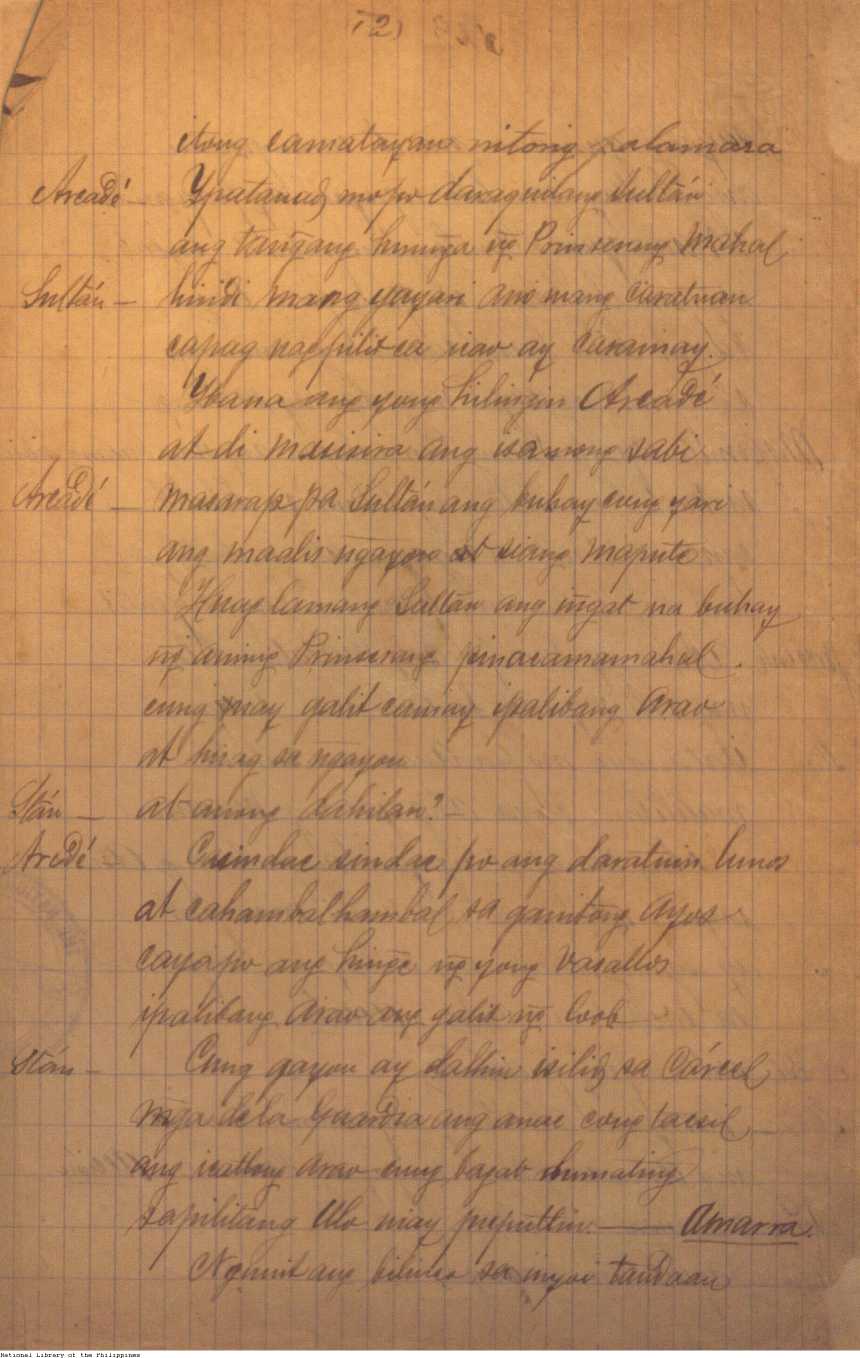 12)
itong camatayang nitong palamara
Arcadé — Ypatauad mo po daraquilang Sultán
ang tangang hininga ng Prinsesang mahal
Sultán — hindi mang yayari ano mang caratuan
capag nagpilit ca icao ay caramay.
Ybana ang yong hilingin Arcadé
at di masisira ang isa mong sabi
Arcadé — masarap pa Sultán ang buhay cung yari
ang maalis ngayon at siang maputi
Huag lamang Sultán ang ingat na buhay
ng aming Prinsesang pinacamamahal.
cung may galit camay ipalibang arao
at huag sa ngayon
Stán — at anong dahilan? —
Arcdé Casindac sindac po ang daratnin lunos
at cahambalhambal sa ganitong ayos
caya po ang hinge ng yong vasallos
ipalibang arao ang galit ng loob
Stán — Cung gayon ay dalhin isilid sa Cárcel
mga de la Guardia ang anac cong tacsil —
ang icatlong arao cung bagat dumating
sapilitang Ulo niay puputlin. —— Amarra.
Ngunit ang bilin co sa inyoi tandaan
National Library of the Philippines